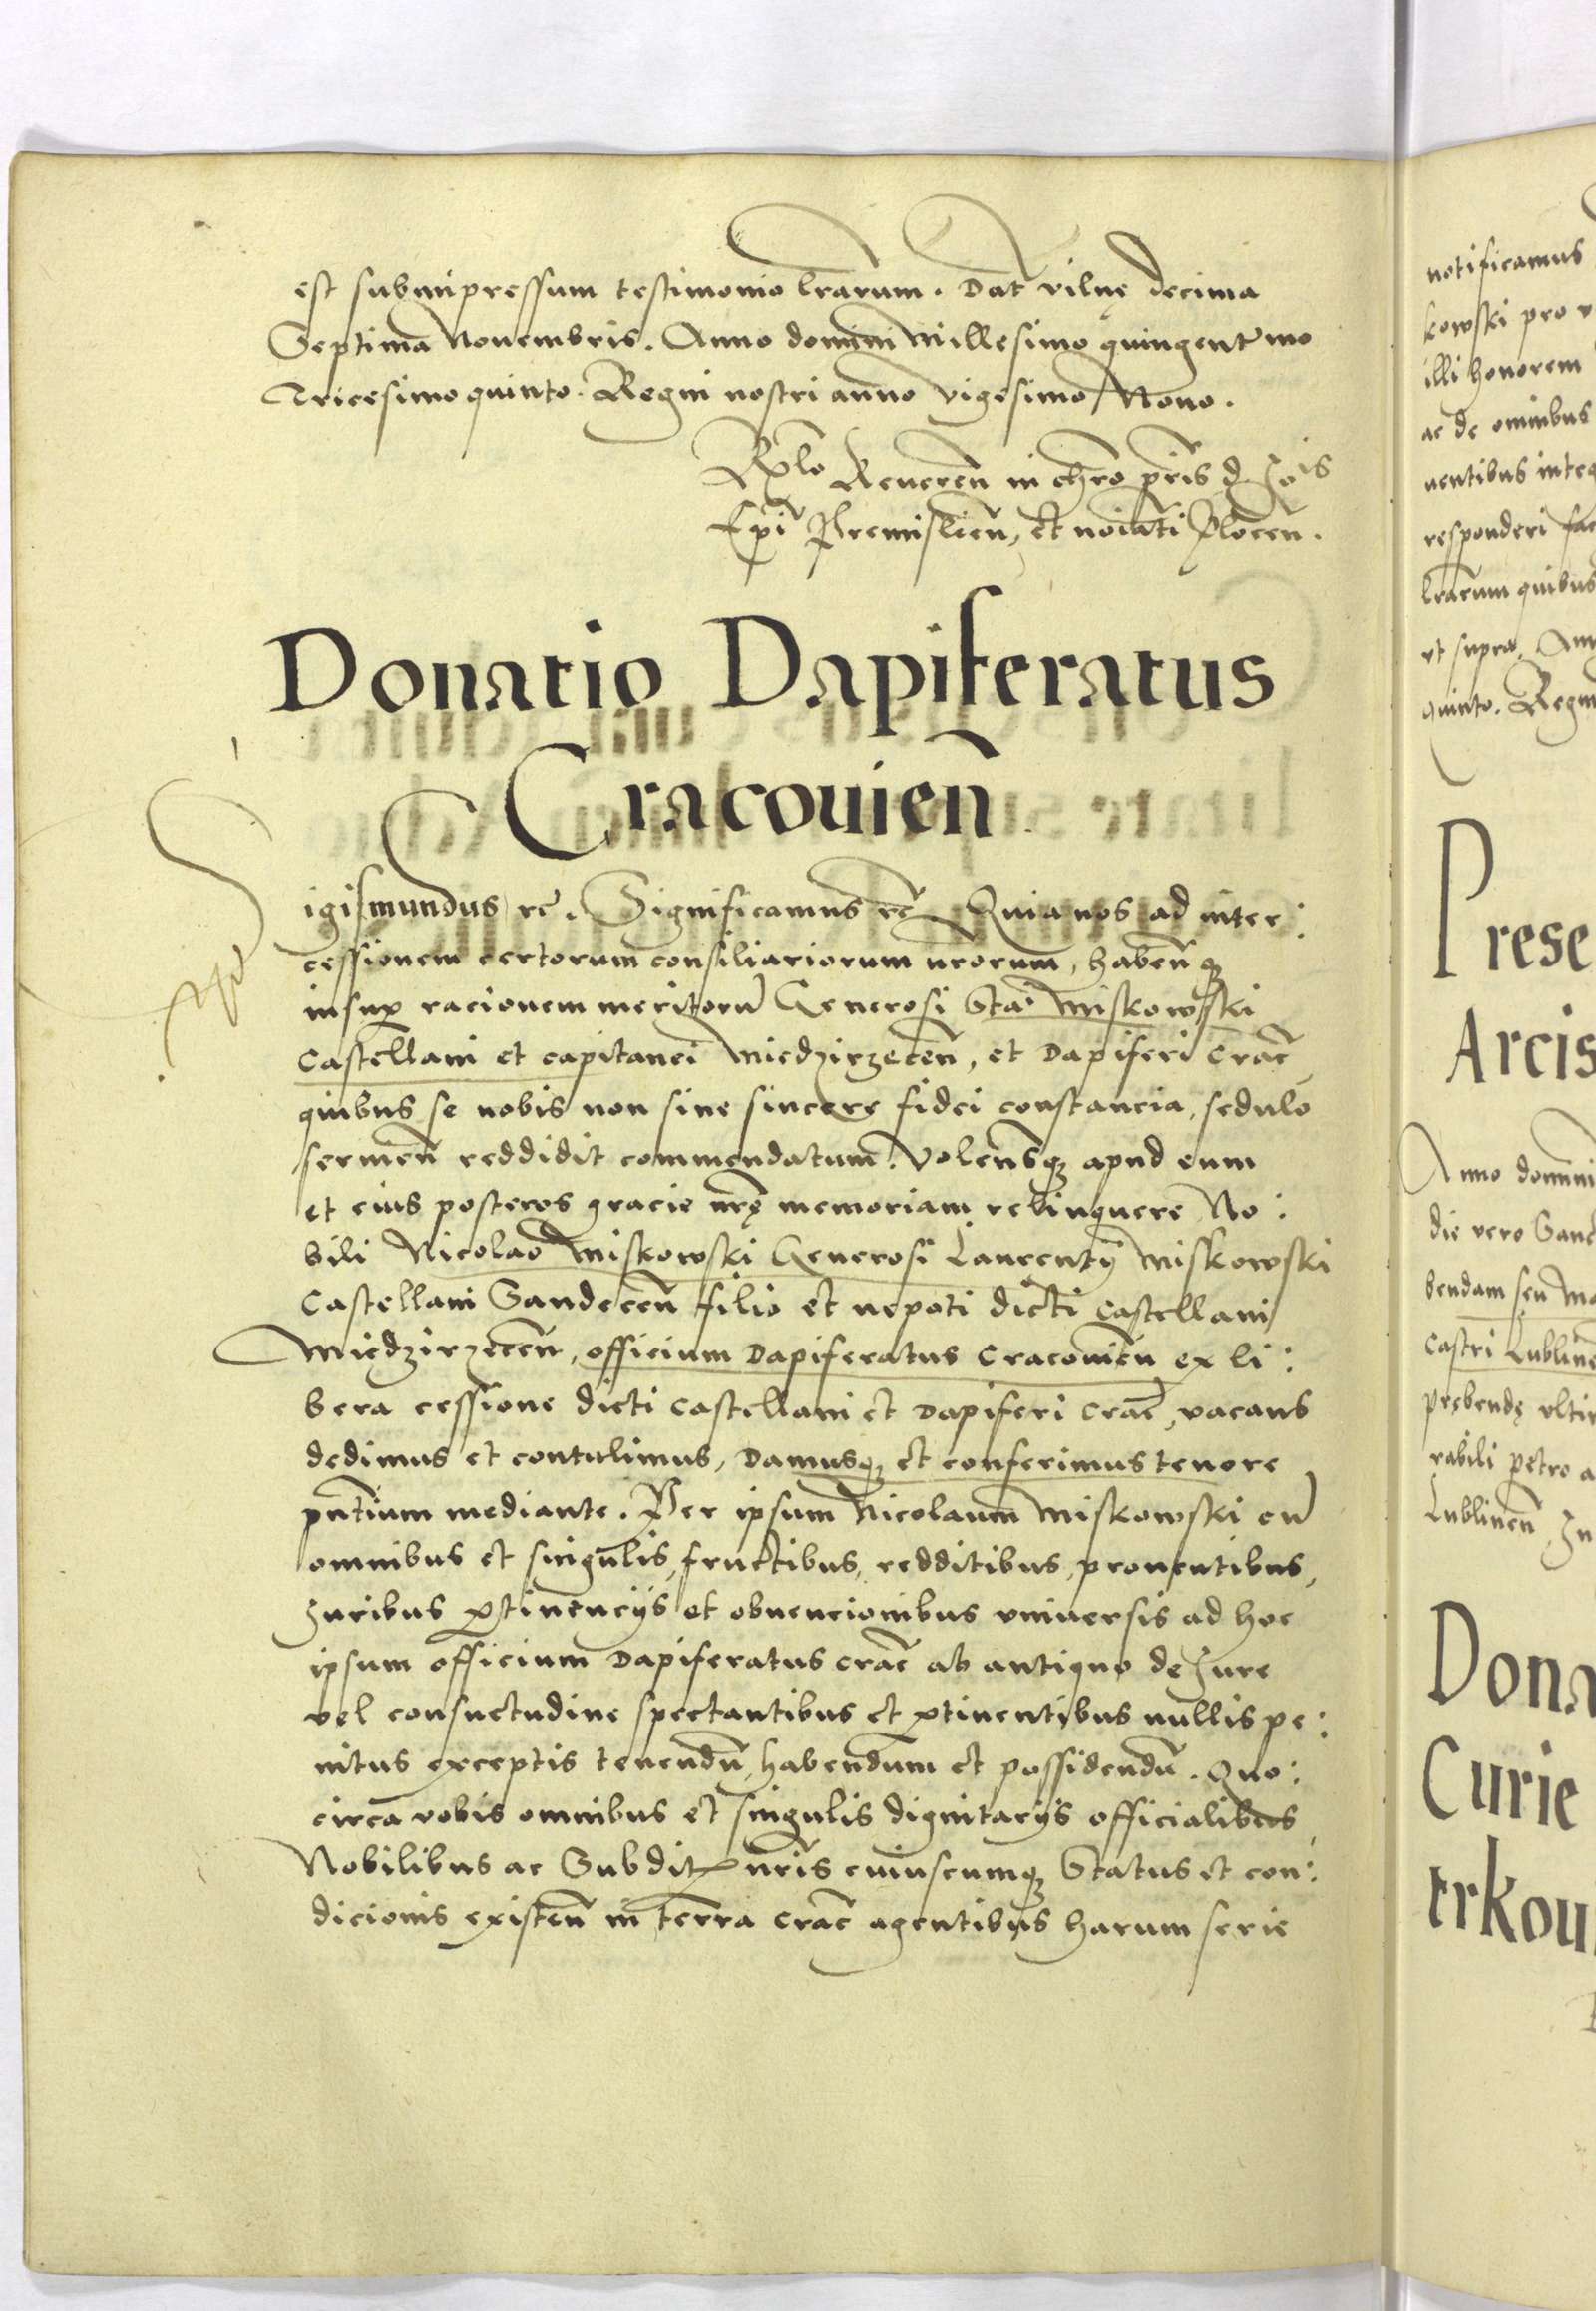 est subimpressum testimonio lrarum. Dat vilnę decima
Septima Nouembris. Anno domini Millesimo quingentmo
Tricesimo quinto. Regni nostri anno vigesimo Nono.
Rlo Reueren in chro pris d Jois
Epi Premislien, et noiati Plocen.
Donatio Dapiferatus
Cracouien
Sigismundus rc. Significamus rc Quia nos ad inter:
cessionem certorum consiliariorum nrorum, habenqз
insup racionem meritoru Generosi Sta. Miskowski
Castellani et capitanei Miedzirzecen, et Dapiferi Crac
quibus se nobis non sine sincere fidei constancia, sedulo
sermen reddidit commendatum. Volensqз apud eum
et eius posteros gracie nrę memoriam relinquere No:
bili Nicolao Miskowski Generosi Laurentÿ Miskowski
Castellani Sandecen filio et nepoti dicti Castellani
Miedzirzecen, officium Dapiferatus Cracouien ex li:
bera cessione dicti Castellani et Dapiferi Crac, vacans
dedimus et contulimus, Damusqз et conferimus tenore
pntium mediante. Per ipsum Nicolaum Miskowski cu
omnibus et singulis, fructibus, redditibus, prouentibus,
Juribus ptinencÿs et obuencionibus vniuersis ad hoc
ipsum officium Dapiferatus Crac ab antiquo de Jure
vel consuetudine spectantibus et ptinentibus nullis pe:
nitus exceptis tenendu, habendum et possidendu. Quo:
circa vobis omnibus et singulis dignitarÿs officialibus
Nobilibus ac Subdit nris cuiuscumqз Status et con:
dicionis existen in terra Crac agentibus harum serie
notificamus
kowski pro
illi honorem
ac de omnibus
uentibus
responderi
lrarum quibus
vt supra.
quinto. Regni
Prese
Arcis
Anno domini
die vero
bendam seu
Castri
prębendę
rabili petro
Lublinen
Dona
Curie
trkou